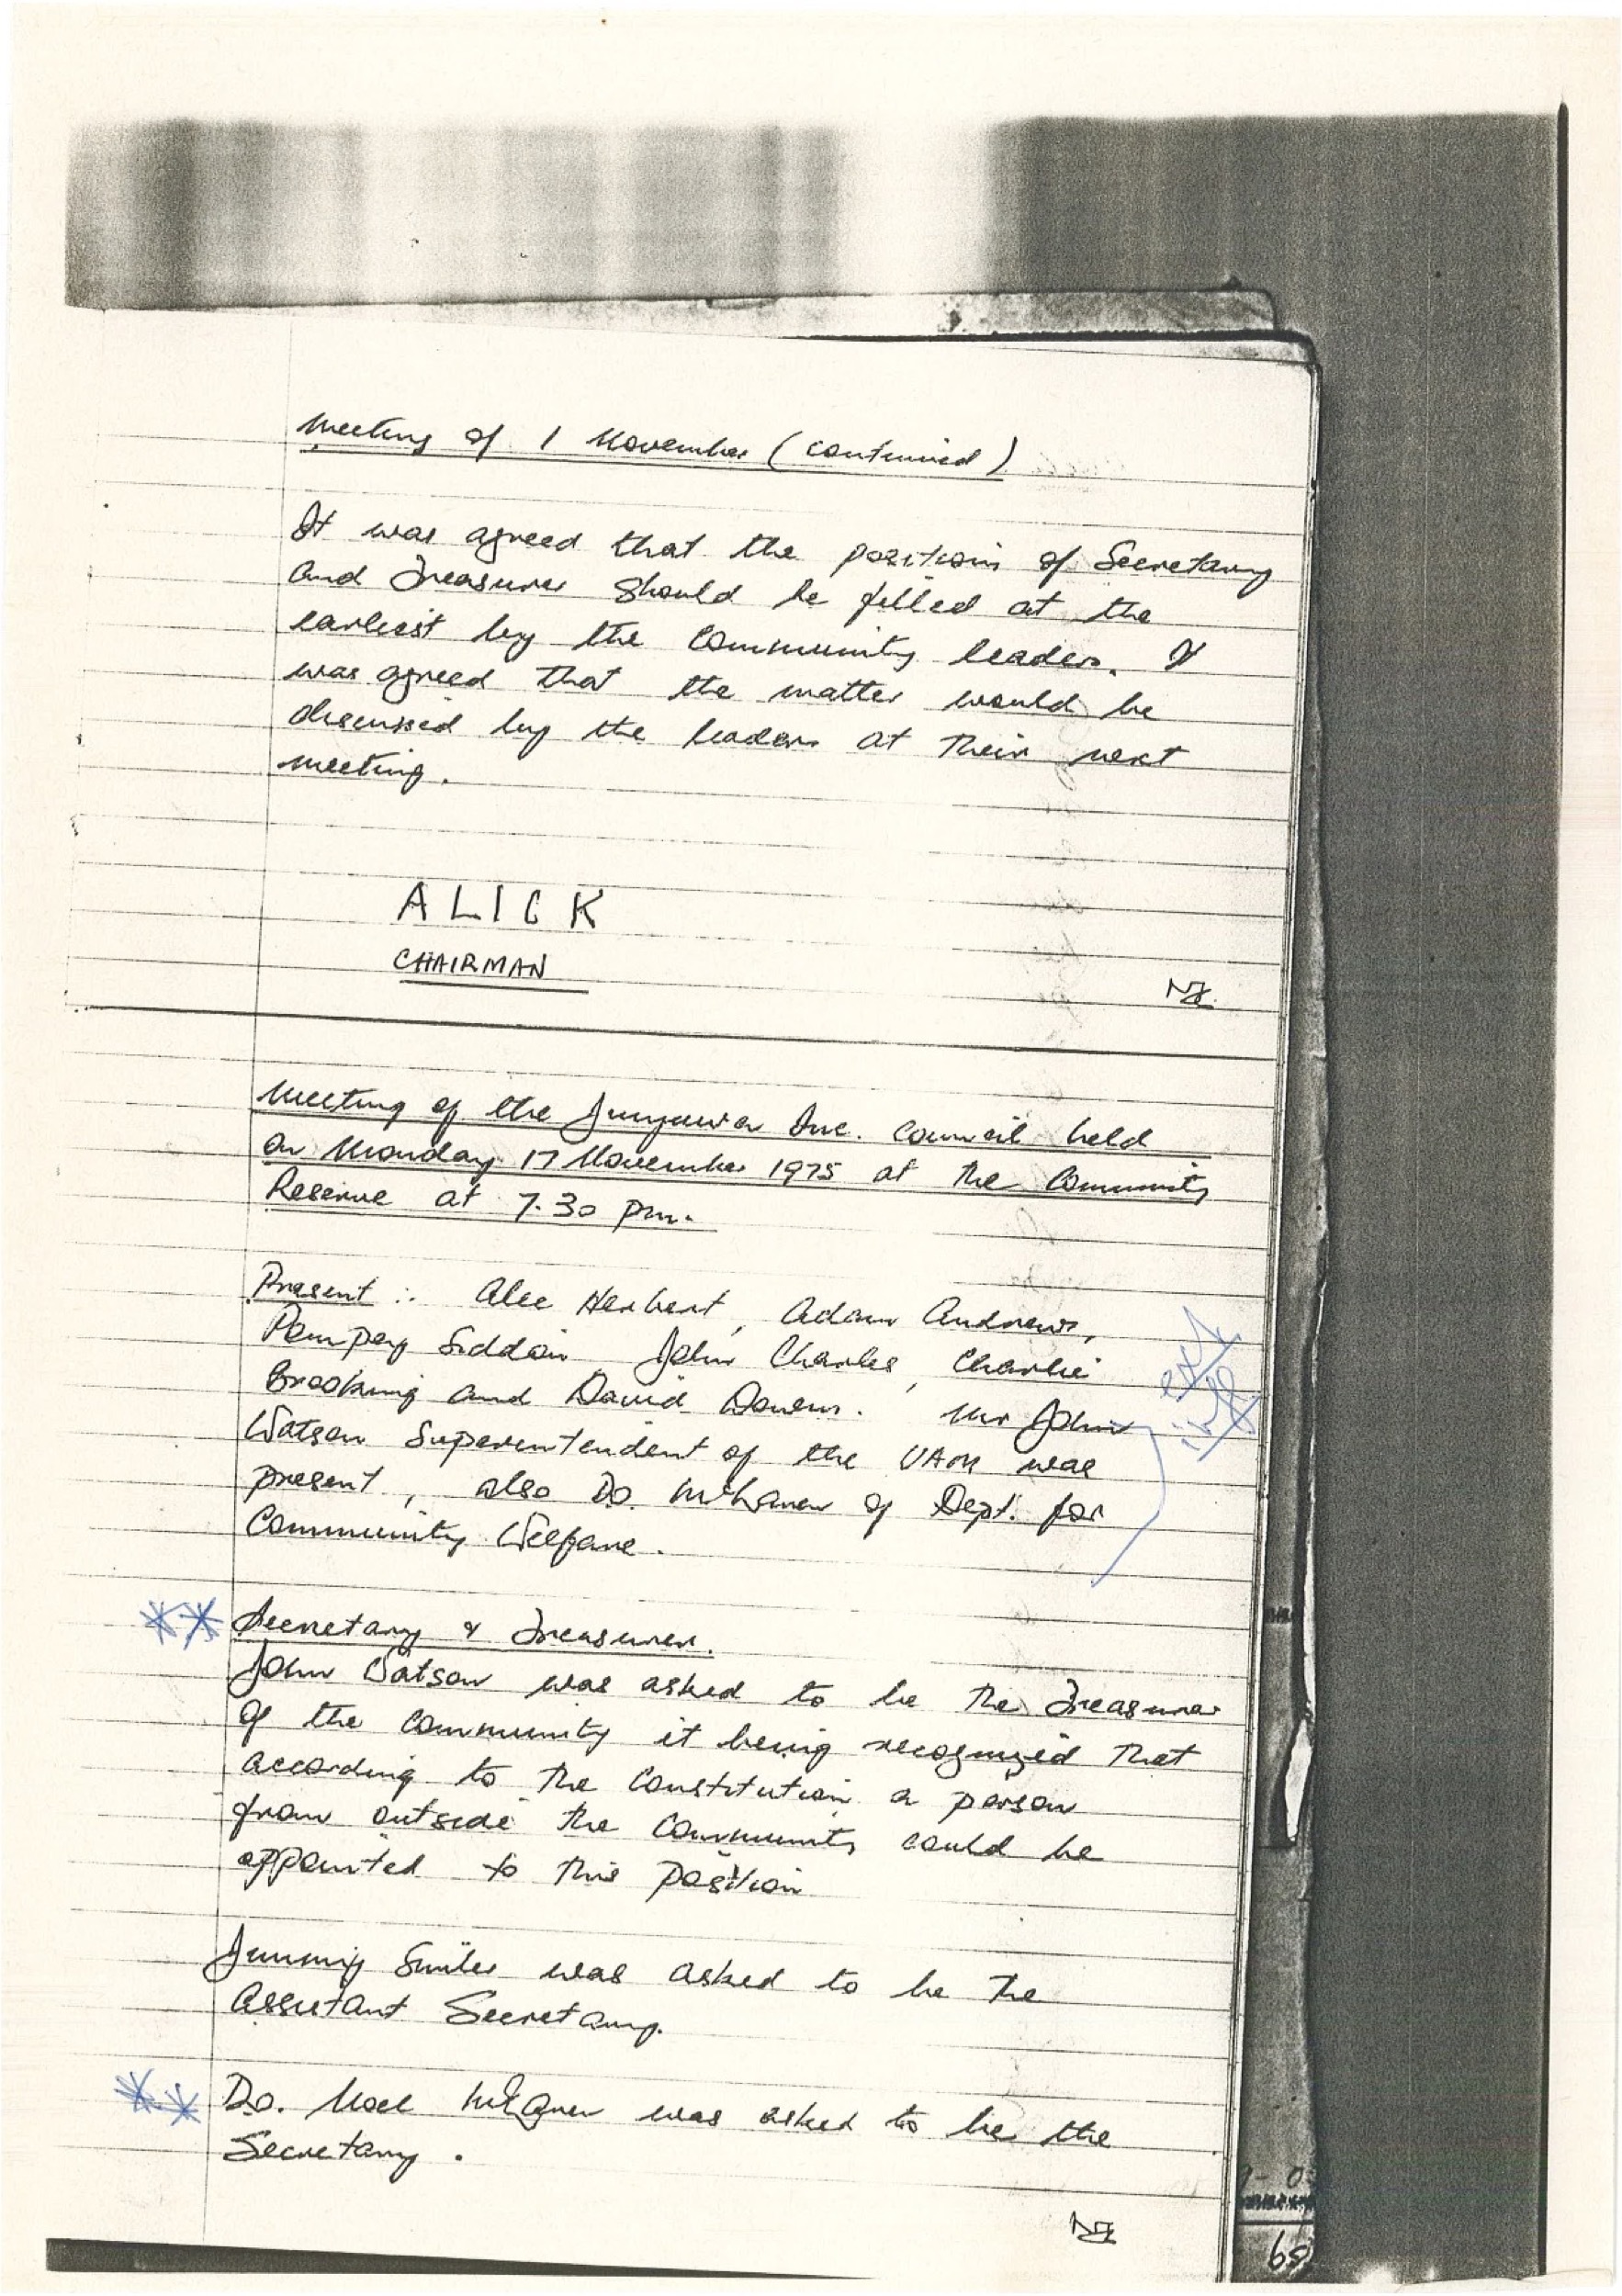 Meeting of 1 November (continued)
It was agreed that the positions of Secretary
and Treasurer should be filled at the
earliest by the Community leaders. It
was agreed that the matter would be
discussed by the leaders at their next
meeting.
ALICK
CHAIRMAN
Meeting of the Junjuwa Inc. Council held
on Monday 17 November 1975 at the Community
Reserve at 7.30 pm.
Present :- Alec Herbert, Adam Andrews,
Pompey Siddon, John Charles, Charlie
Brooking and David Downs. Mr John
Watson Superintendent of the UAM was
present, also D.O. of Dept. for
Community Welfare.
** Secretary & Treasurer.
John Watson was asked to be the Treasurer
of the Community it being recognized that
according to the Constitution a person
from outside the Community could be
appointed to this position
Jimmy Smiler was asked to be the
Assistant Secretary.
** D.O. Noel was asked to be the
Secretary.
68